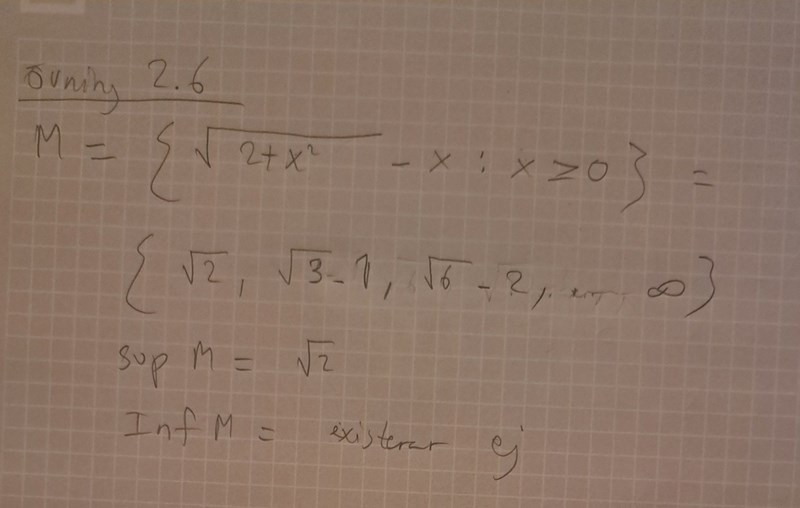 Övning 2.6
M = { √(2+x²) - x : x ≥ 0 } =
{ √2, √3-1, √6-2, ... ∞ }
sup M = √2
Inf M = existerar ej